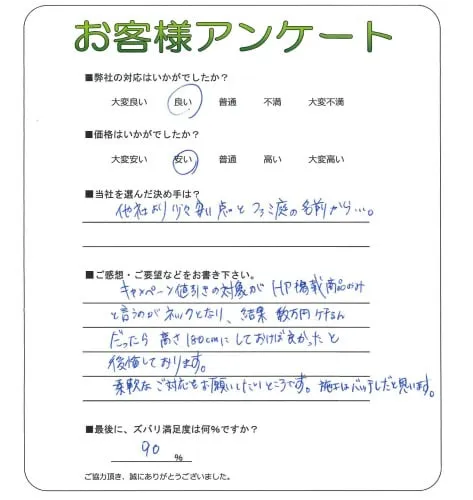 お客様アンケート
■弊社の対応はいかがでしたか?
大変良い 良い 普通 不満 大変不満
■価格はいかがでしたか?
大変安い 安い 普通 高い 大変高い
■当社を選んだ決め手は?
他社より少々安い点と ファミ庭の名前から…。
■ご感想・ご要望などをお書き下さい。
キャンペーン値引きの対象が HP掲載商品のみ
と言うのがネックとなり、結果 数万円ケチるん
だったら 高さ180cmにしておけば良かったと
後悔しております。
柔軟なご対応をお願いしたいところです。施工はバッチしだと思います。
■最後に、ズバリ満足度は何%ですか?
90 %
ご協力頂き、誠にありがとうございました。